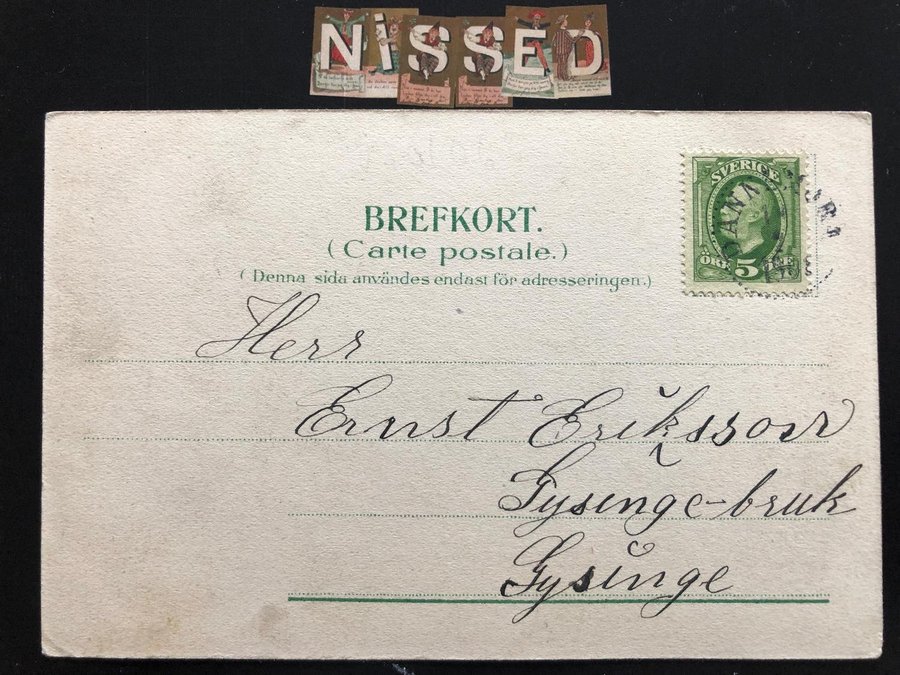 NiSSED
BREFKORT.
(Carte postale.)
(Denna sida användes endast för adresseringen.)
SVERIGE
ÖRE 5 ÖRE
Herr
Ernst Eriksson
Gysinge-bruk
Gysinge